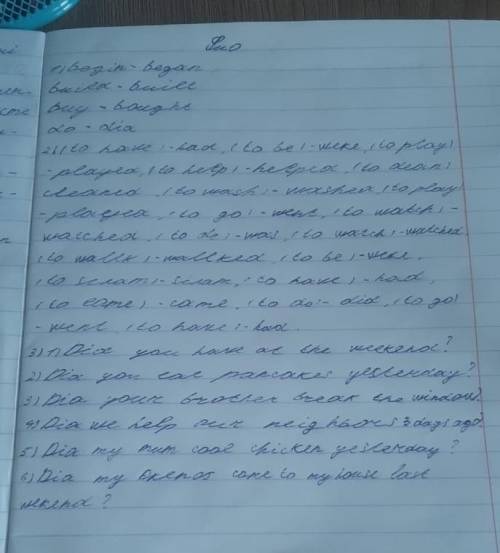 1) begin - began
build - built
buy - bought
do - did
2) (to have) - had, (to be) - were, (to play)
- played, (to help) - helped, (to clean)
cleaned, (to wash) - washed, (to play)
- played, (to go) - went, (to watch) -
watched, (to be) - was, (to watch) - watched
(to walk) - walked, (to be) - were,
(to swim) - swam, (to have) - had,
(to come) - came, (to do) - did, (to go)
- went, (to have) - had.
3) 1) Did you have at the weekend?
2) Did you eat pancakes yesterday?
3) Did your brother break the window?
4) Did we help our neighbors 3 days ago?
5) Did my mum cook chicken yesterday?
6) Did my friends come to my house last
weekend?